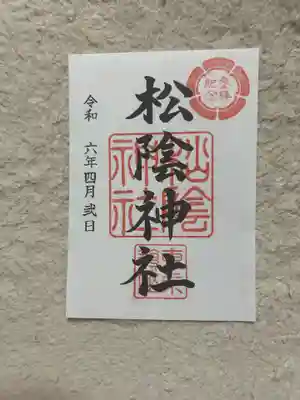 松陰神社
令和 六年四月弐日
松陰
神社